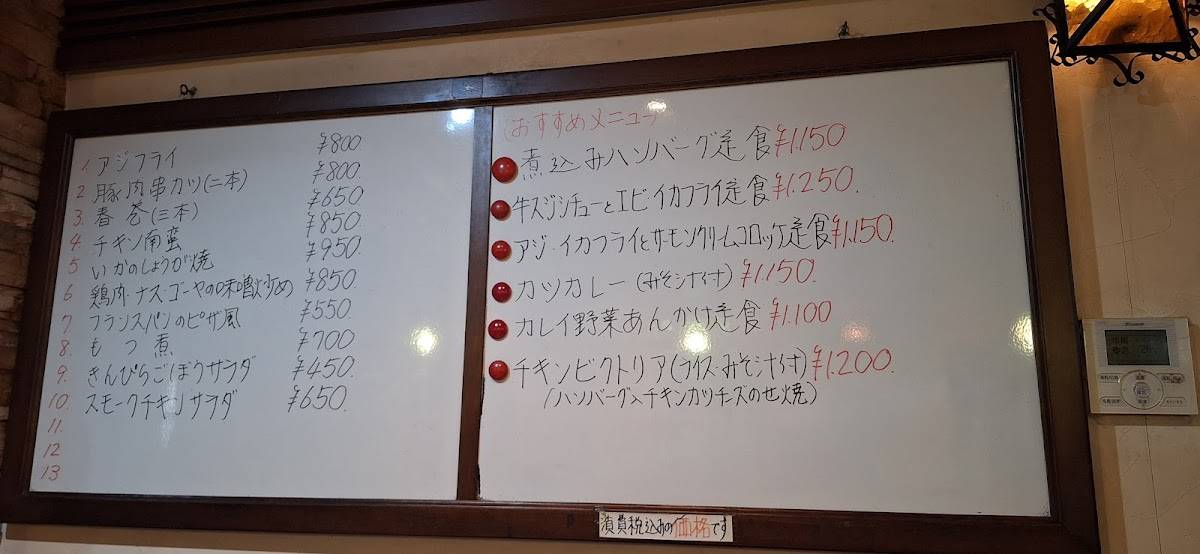 1. アジフライ ¥800
2 豚肉串カツ(二本) ¥800.
3. 春巻(三本) ¥650
4. チキン南蛮 ¥850
5 いかのしょうが焼 ¥950
6 鶏肉・ナス・ゴーヤの味噌炒め ¥850
7 フランスパンのピザ風 ¥550
8. もつ煮 ¥700
9. きんぴらごぼうサラダ ¥450
10. スモークチキンサラダ ¥650.
11.
12
13
(おすすめメニュー)
煮込みハンバーグ定食 ¥1,150
牛スジシチューとエビイカフライ定食 ¥1.250.
アジ・イカフライとサーモンクリームコロッケ定食 ¥1,150.
カツカレー(みそ汁付) ¥1.150
カレイ野菜あんかけ定食 ¥1.100
チキンビクトリア(ライス・みそ汁付) ¥1.200.
(ハンバーグへチキンカツチーズのせ焼)
消費税込みの価格です